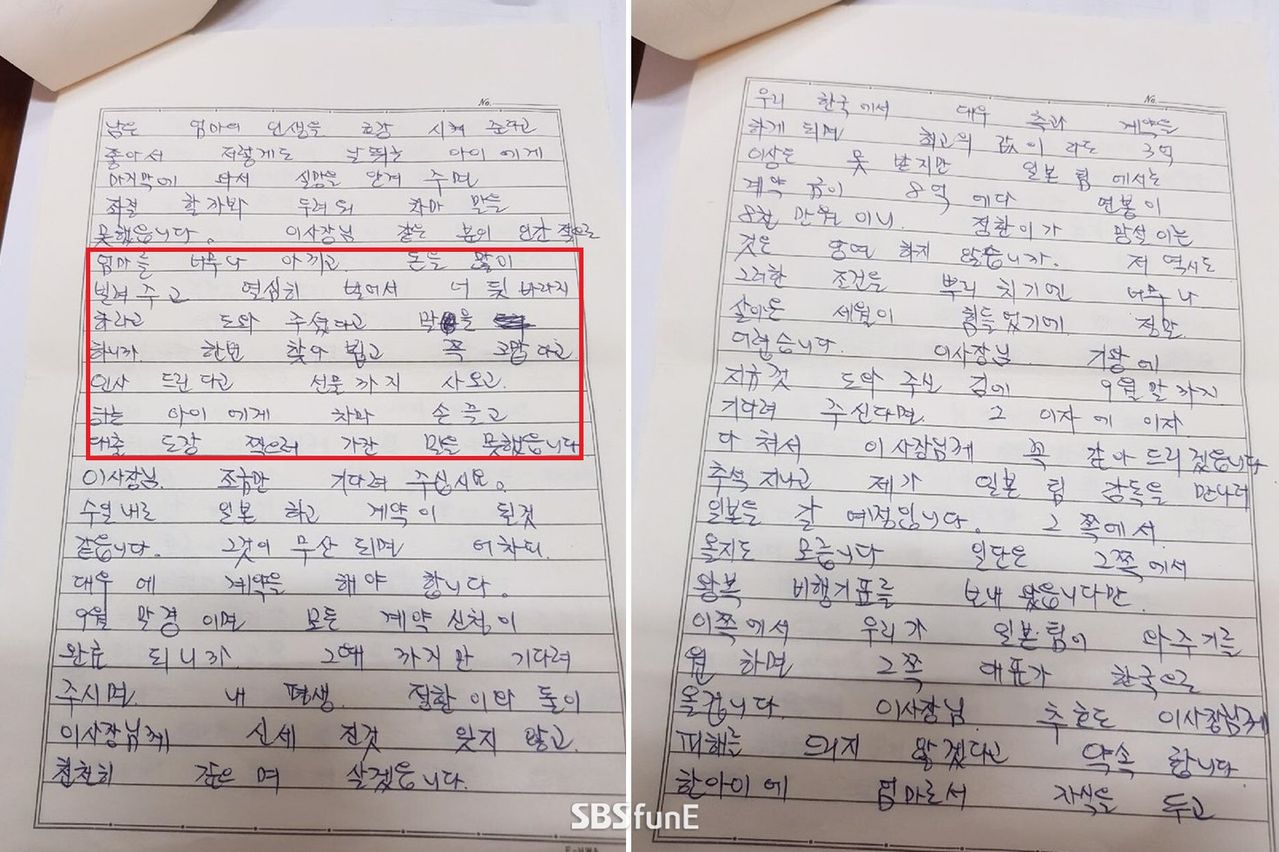 No.
남은 엄마의 인생을 보장 시켜 준다고
좋아서 저렇게도 날뛰는 아이 에게
마지막에 와서 실망을 안겨 주면
좌절 할까봐 두려워 차마 말을
못했습니다. 이사장님 같은 분의 인간적으로
엄마를 너무나 아끼고. 돈을 많이
빌려 주고 열심히 벌어서 너 뒷 바라지
하라고 도와 주셨다고 말을
하니까. 한번 찾아 뵙고 꼭 고맙 다고
인사 드린 다고 선물 까지 사오고.
하는 아이 에게 차마 손 끌고
대출 도장 찍으러 가잔 말을 못했습니다
이사장님. 조금만 기다려 주십시요.
수일내로 일본 하고 계약이 될것
같습니다. 그것이 무산 되면 어차피.
대우 에 계약을 해야 합니다.
9월 말경 이면 모든 계약 신청이
완료 되니까. 그때 까지만 기다려
주시면. 내 평생. 철환이와 둘이
이사장님께 신세 진것 잊지 않고.
천천히 갚으며 살겠습니다.
No.
우리 한국에서 대우 측과 계약을
하게 되면 최고의 값이 라도 3억
이상은 못 받지만 일본 팀 에서는
계약 금이 8억 에다 연봉이
8천 만원 이니. 철환이가 망설 이는
것은 당연 하지 않습니까. 저 역시도
그러한 조건을 뿌리 치기엔 너무나
살아온 세월이 힘들 었기에 정말
어렵습니다. 이사장님 기왕에
지금것 도와 주신 김에 9월 말 까지
기다려 주신다면. 그 이자에 이자
다 쳐서 이사장님께 꼭 갚아 드리겠습니다
추석 지나고 제가 일본 팀 감독을 만나러
일본을 갈 예정입니다. 그 쪽에서
올지도 모릅니다 일단은 그쪽에서
왕복 비행기표를 보내 왔습니다만.
이쪽에서 우리가 일본팀이 와주기를
원하면 그쪽 대표가 한국으로
올겁니다. 이사장님 추호도 이사장님께
피해를 드리지 않겠다고 약속 합니다
한아이에 엄마로서 자식을 두고
SBSfunE